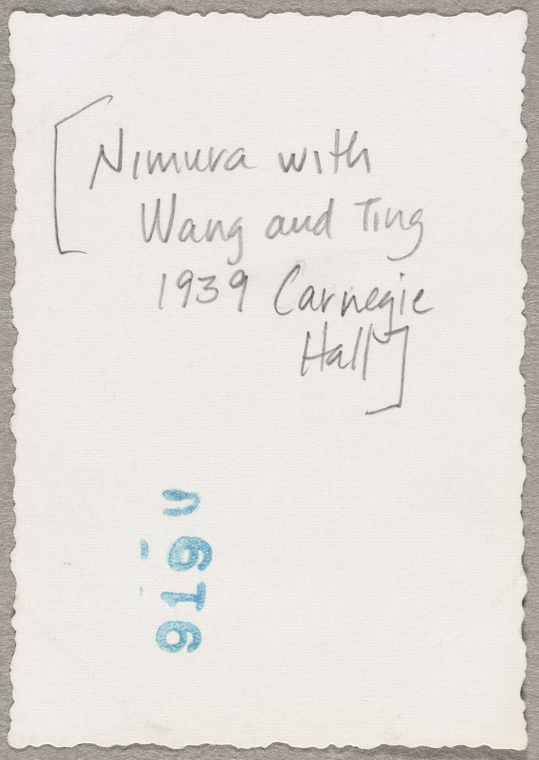 [Nimura with
Wang and Ting
1939 Carnegie
Hall]